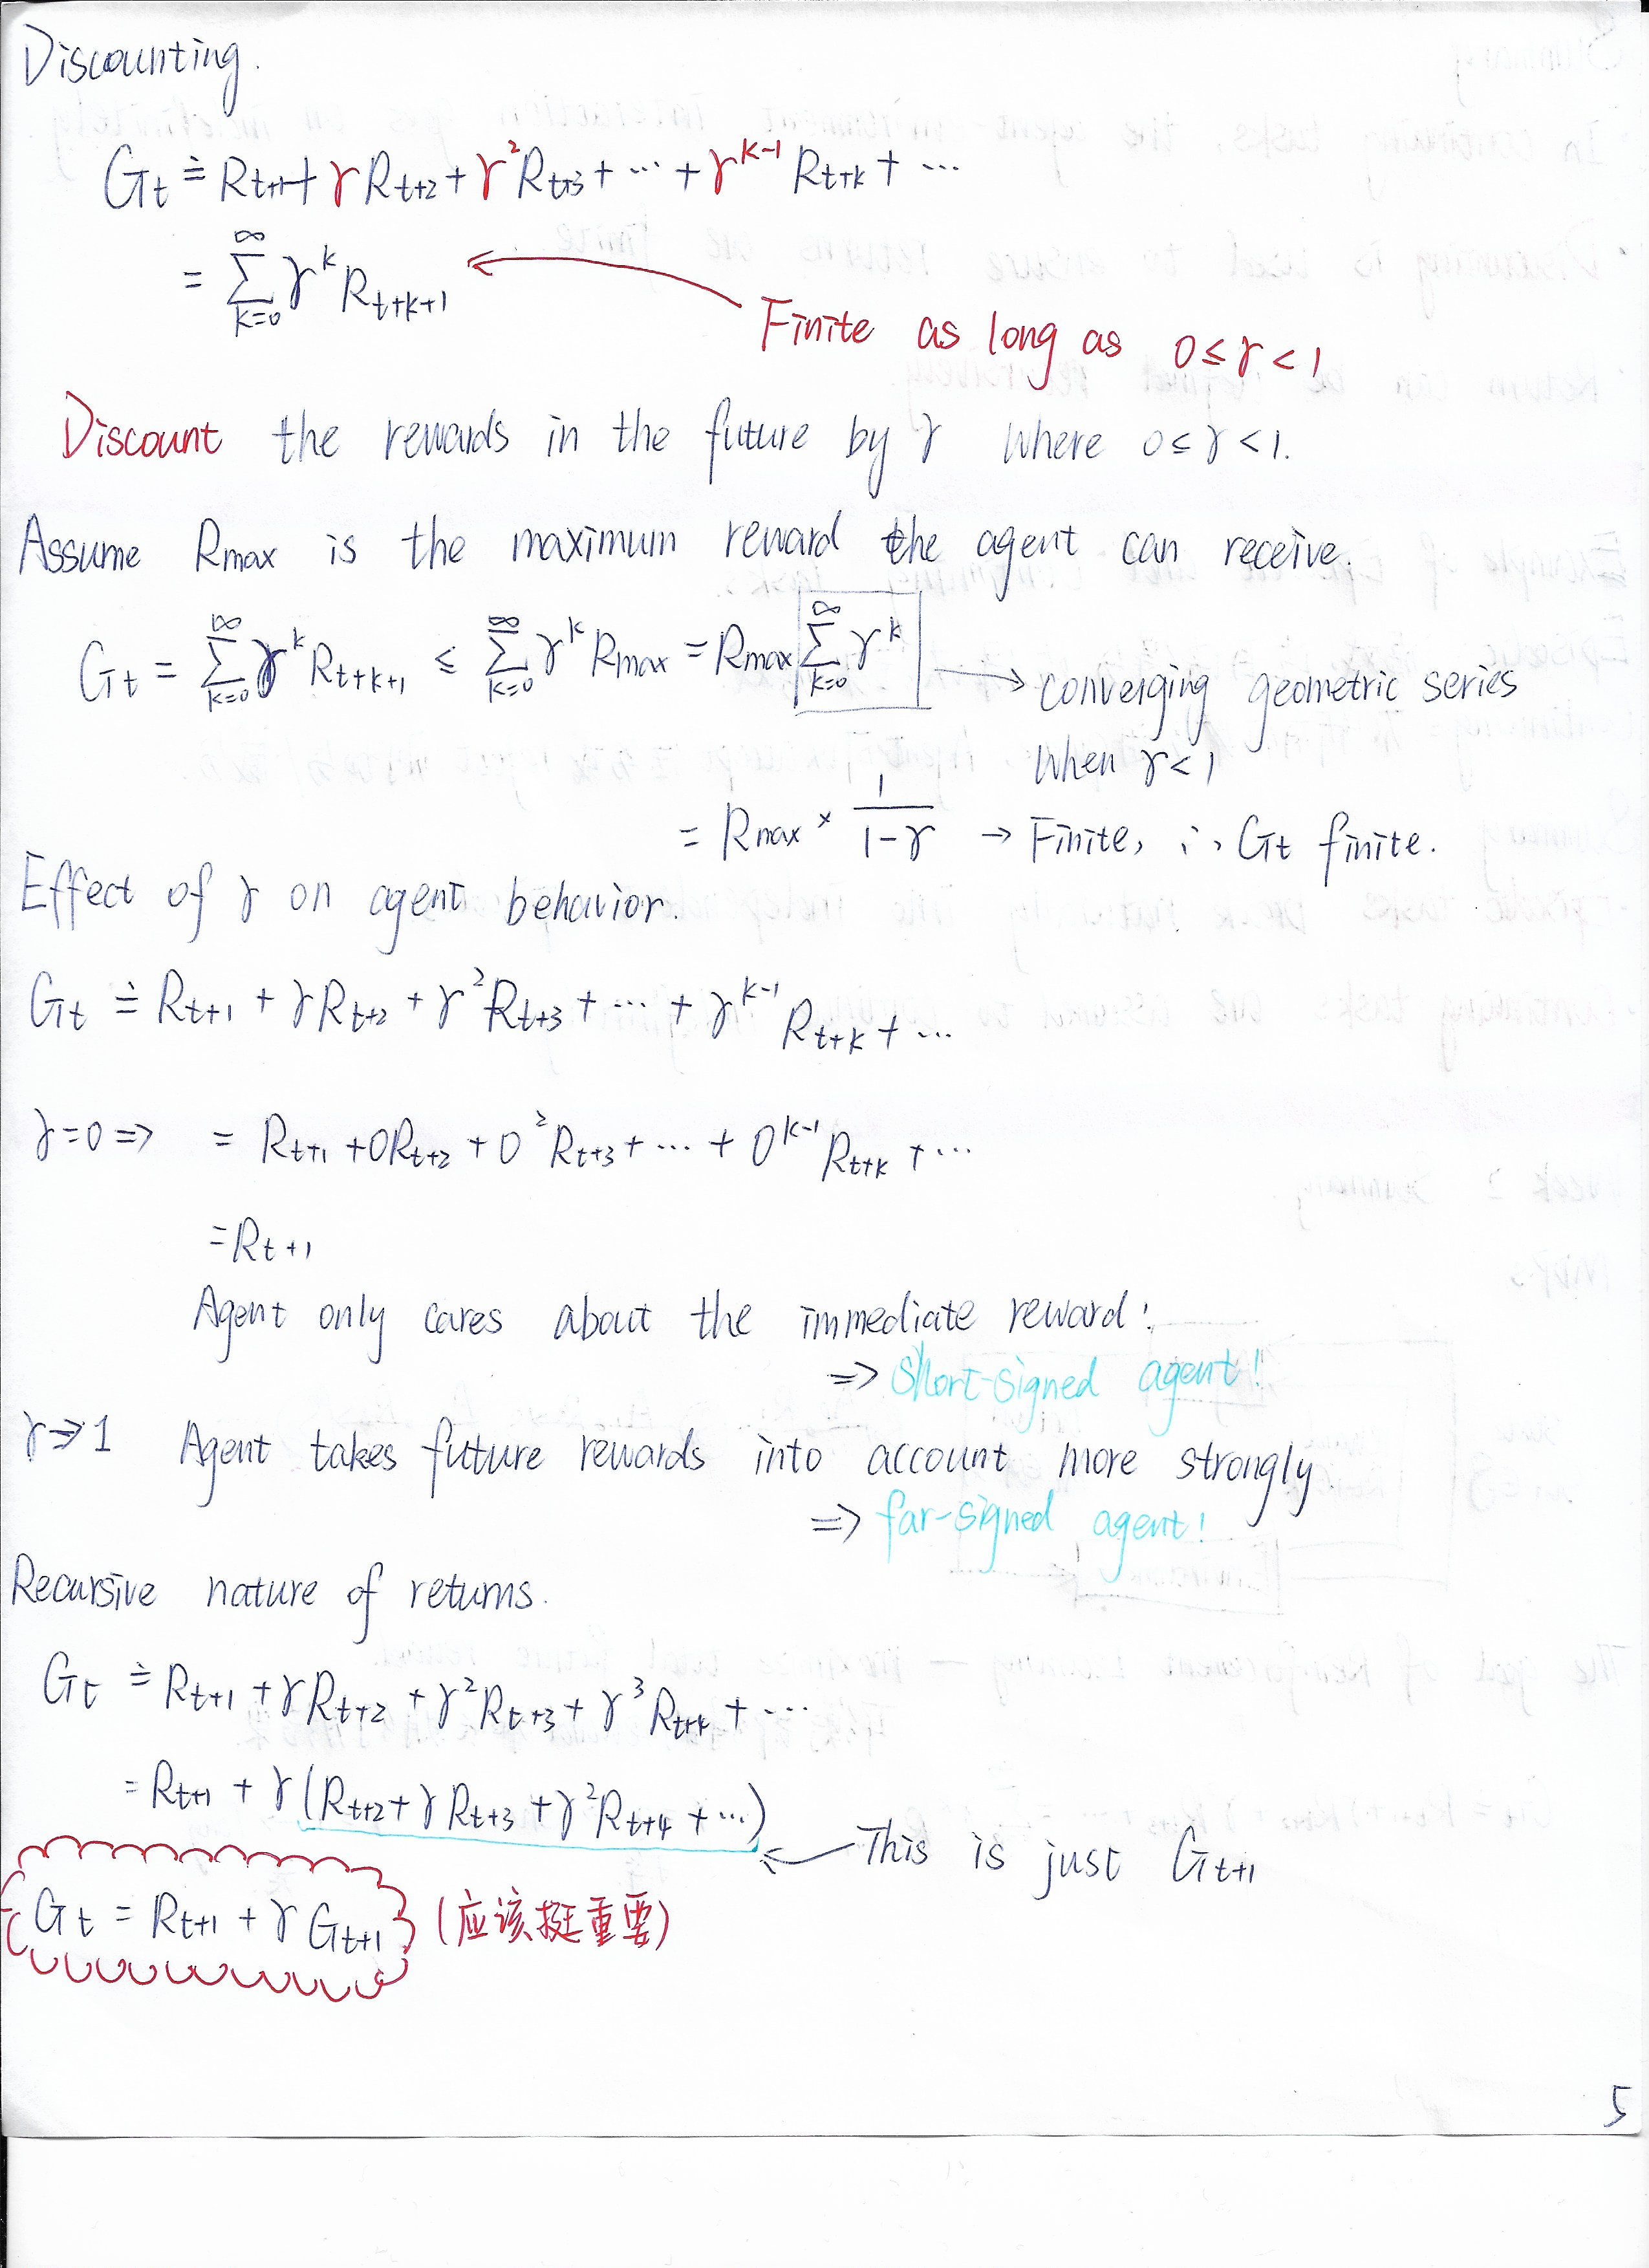 Discounting.
Gt ≐ Rt+1 + γRt+2 + γ²Rt+3 + ··· + γ^(k-1) Rt+k + ···
= ∑_{k=0}^{∞} γ^k R_{t+k+1}
Finite as long as 0 ≤ γ < 1
Discount the rewards in the future by γ where 0 ≤ γ < 1.
Assume Rmax is the maximum reward the agent can receive.
Gt = ∑_{k=0}^{∞} γ^k R_{t+k+1} ≤ ∑_{k=0}^{∞} γ^k Rmax = Rmax ∑_{k=0}^{∞} γ^k → converging geometric series
when γ < 1
= Rmax × 1/(1-γ) → Finite, ∴ Gt finite.
Effect of γ on agent behavior.
Gt ≐ Rt+1 + γRt+2 + γ²Rt+3 + ··· + γ^(k-1) Rt+k + ···
γ=0 => = Rt+1 + 0Rt+2 + 0²Rt+3 + ··· + 0^(k-1) Rt+k + ···
= Rt+1
Agent only cares about the immediate reward!
=> short-signed agent!
γ→1 Agent takes future rewards into account more strongly
=> far-signed agent!
Recursive nature of returns.
Gt ≐ Rt+1 + γRt+2 + γ²Rt+3 + γ³Rt+4 + ···
= Rt+1 + γ(Rt+2 + γRt+3 + γ²Rt+4 + ···)
← This is just Gt+1
Gt = Rt+1 + γGt+1 (应该挺重要)
5